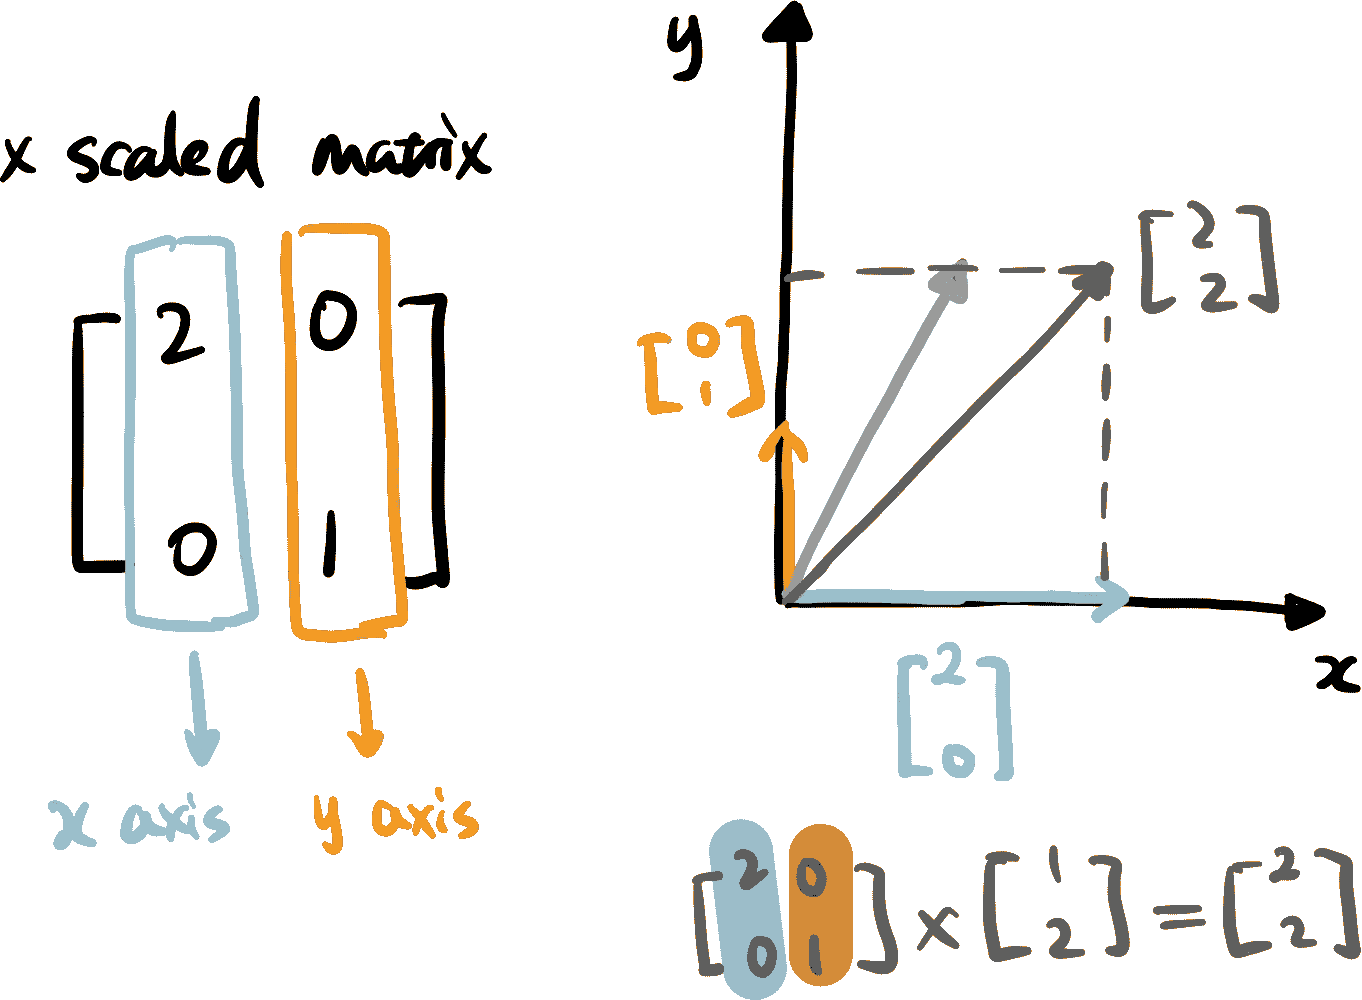 x scaled matrix
2 0
0 1
x axis
y axis
y
[0
1]
[2
2]
x
[2
0]
[2 0
0 1] × [1
2] = [2
2]